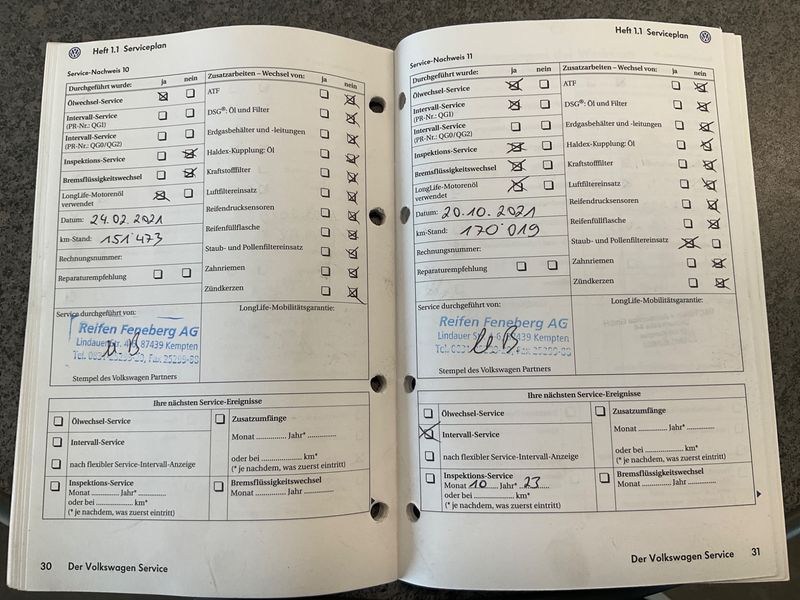 Heft 1.1 Serviceplan
Service-Nachweis 10
Durchgeführt wurde: ja nein
Ölwechsel-Service
Intervall-Service
(PR-Nr.: QGI)
Intervall-Service
(PR-Nr.: QG0/QG2)
Inspektions-Service
Bremsflüssigkeitswechsel
LongLife-Motorenöl
verwendet
Datum: 24.02.2021
km-Stand: 151 473
Rechnungsnummer:
Reparaturempfehlung
Zusatzarbeiten – Wechsel von: ja nein
ATF
DSG®: Öl und Filter
Erdgasbehälter und -leitungen
Haldex-Kupplung: Öl
Kraftstofffilter
Luftfiltereinsatz
Reifendrucksensoren
Reifenfüllflasche
Staub- und Pollenfiltereinsatz
Zahnriemen
Zündkerzen
Service durchgeführt von:
Reifen Feneberg AG
Lindauer 87439 Kempten
Stempel des Volkswagen Partners
LongLife-Mobilitätsgarantie:
Ihre nächsten Service-Ereignisse
Ölwechsel-Service
Intervall-Service
nach flexibler Service-Intervall-Anzeige
Inspektions-Service
Monat ............ Jahr* ............
oder bei ................ km*
(* je nachdem, was zuerst eintritt)
Zusatzumfänge
Monat ............ Jahr* ............
oder bei ................ km*
(* je nachdem, was zuerst eintritt)
Bremsflüssigkeitswechsel
Monat ............ Jahr ............
30 Der Volkswagen Service
Heft 1.1 Serviceplan
Service-Nachweis 11
Durchgeführt wurde: ja nein
Ölwechsel-Service
Intervall-Service
(PR-Nr.: QGI)
Intervall-Service
(PR-Nr.: QG0/QG2)
Inspektions-Service
Bremsflüssigkeitswechsel
LongLife-Motorenöl
verwendet
Datum: 20.10.2021
km-Stand: 170 019
Rechnungsnummer:
Reparaturempfehlung
Zusatzarbeiten – Wechsel von: ja nein
ATF
DSG®: Öl und Filter
Erdgasbehälter und -leitungen
Haldex-Kupplung: Öl
Kraftstofffilter
Luftfiltereinsatz
Reifendrucksensoren
Reifenfüllflasche
Staub- und Pollenfiltereinsatz
Zahnriemen
Zündkerzen
Service durchgeführt von:
Reifen Feneberg AG
Lindauer 87439 Kempten
Stempel des Volkswagen Partners
LongLife-Mobilitätsgarantie:
Ihre nächsten Service-Ereignisse
Ölwechsel-Service
Intervall-Service
nach flexibler Service-Intervall-Anzeige
Inspektions-Service
Monat 10 Jahr* 23
oder bei ................ km*
(* je nachdem, was zuerst eintritt)
Zusatzumfänge
Monat ............ Jahr* ............
oder bei ................ km*
(* je nachdem, was zuerst eintritt)
Bremsflüssigkeitswechsel
Monat ............ Jahr ............
Der Volkswagen Service 31